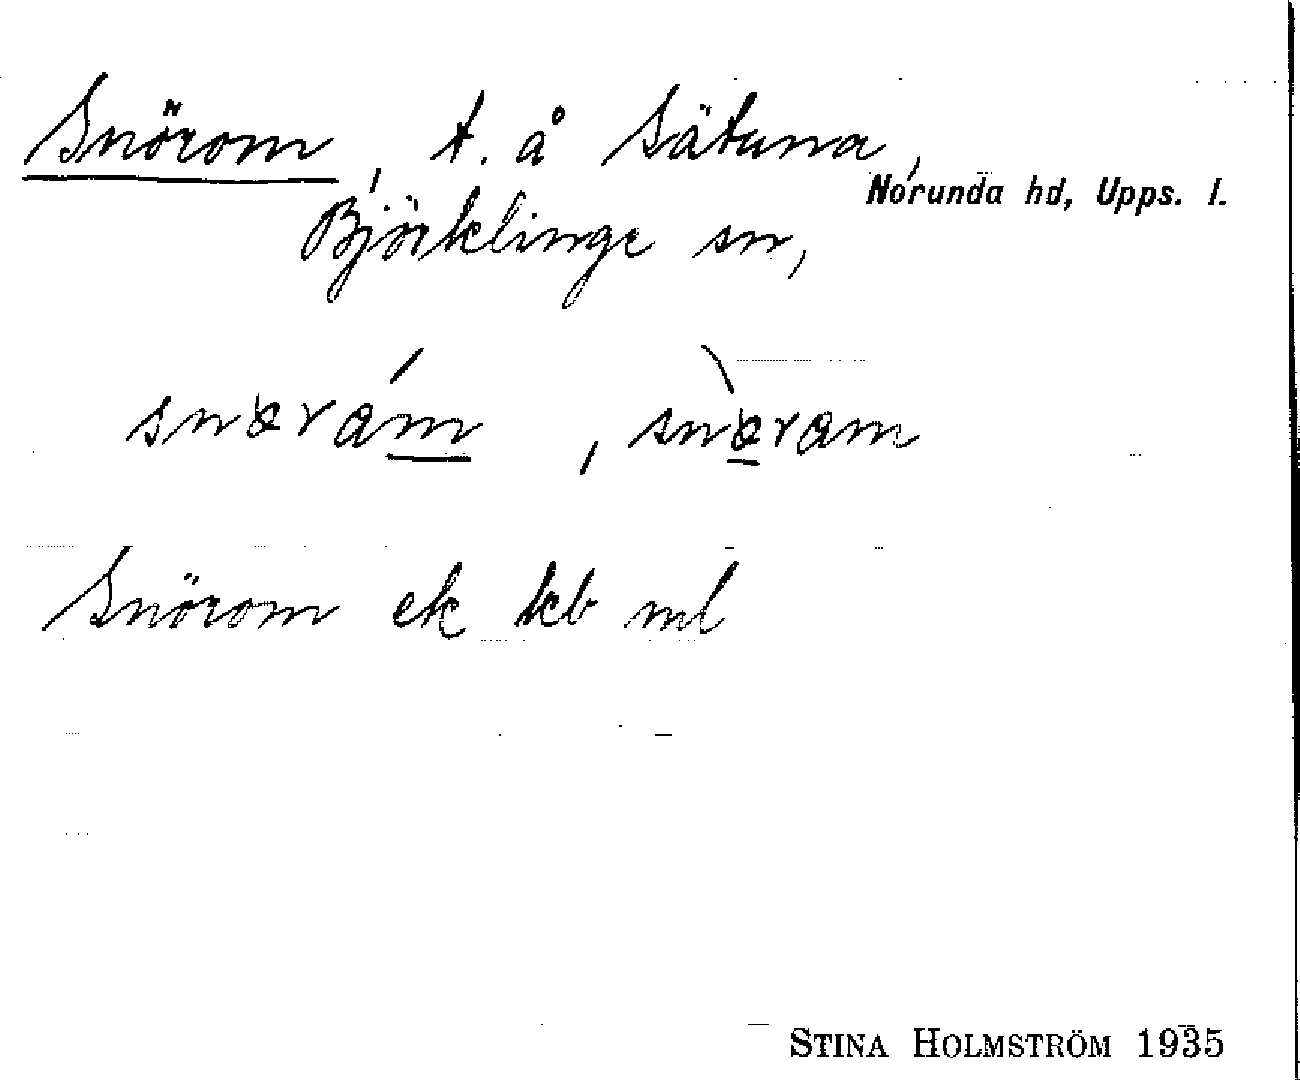 Snörom, t. å Sätuna,
Norunda hd, Upps. l.
Björklinge sn,
snøram, snøram
Snörom ek kb ml
STINA HOLMSTRÖM 1935